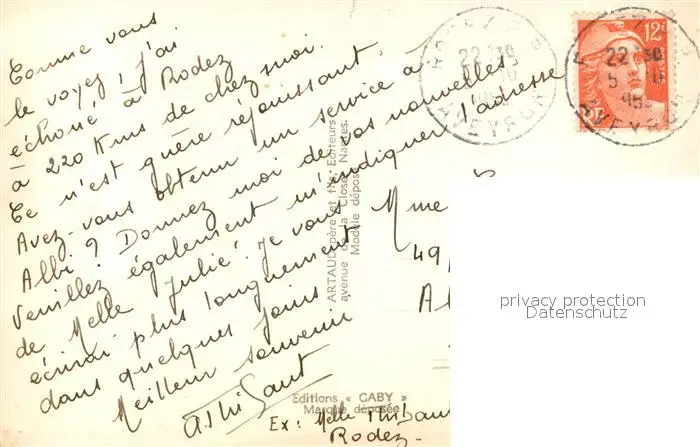 Comme vous
le voyez, j'ai
échoué à Rodez
à 220 Kms de chez moi.
Ce n'est guère réjouissant.
Avez-vous obtenu un service à
Albi ? Donnez moi de vos nouvelles
Veuillez également m'indiquer l'adresse
de Melle Julié. Je vous
écrirai plus longuement
dans quelques jours
Meilleur souvenir
Ex: Melle Thibaut
Rodez-
Mme
49,
Al
ARTAUD père et fils Editeurs
avenue de la Close Nantes.
Modèle déposé
Editions « GABY »
Marque déposée
RODEZ
22 30
5 10
AVEYRON
12F
22 30
5 10
195
AVEYRON
privacy protection
Datenschutz